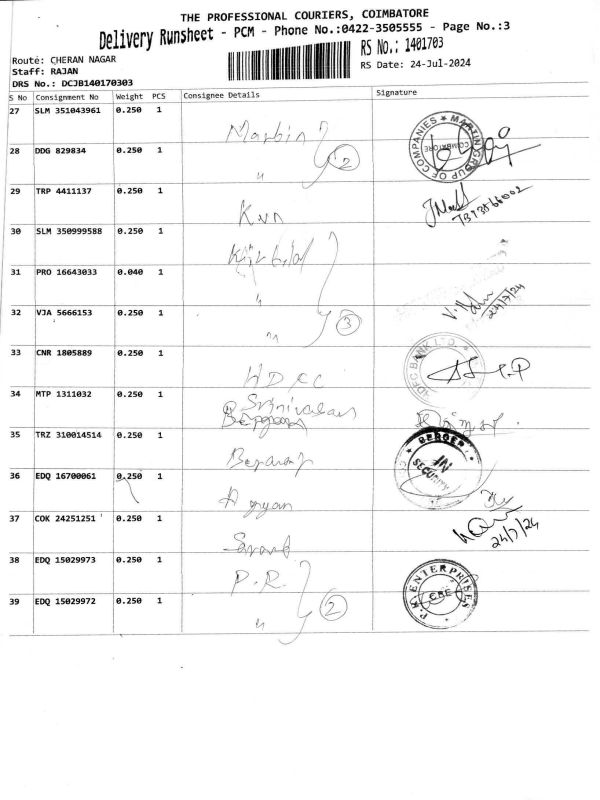 THE PROFESSIONAL COURIERS, COIMBATORE
Delivery Runsheet - PCM - Phone No.:0422-3505555 - Page No.:3
Route: CHERAN NAGAR
Staff: RAJAN
DRS No.: DCJB140170303
RS No.: 1401703
RS Date: 24-Jul-2024
S No Consignment No Weight PCS Consignee Details Signature
27 SLM 351043961 0.250 1 Martin
MARTIN GROUP OF COMPANIES COIMBATORE
28 DDG 829834 0.250 1 " 2
29 TRP 4411137 0.250 1 Kvn
30 SLM 350999588 0.250 1
31 PRO 16643033 0.040 1 "
24/7/24
32 VJA 5666153 0.250 1 " 3
33 CNR 1805889 0.250 1 HDFC
HDFC BANK LTD.
34 MTP 1311032 0.250 1 Srinivasan
35 TRZ 310014514 0.250 1
BERGER
SECURITY
IN
36 EDQ 16700061 0.250 1
37 COK 24251251 0.250 1
24/7/24
38 EDQ 15029973 0.250 1 P.R.
P.R ENTERPRISES
CBE
39 EDQ 15029972 0.250 1 " 2